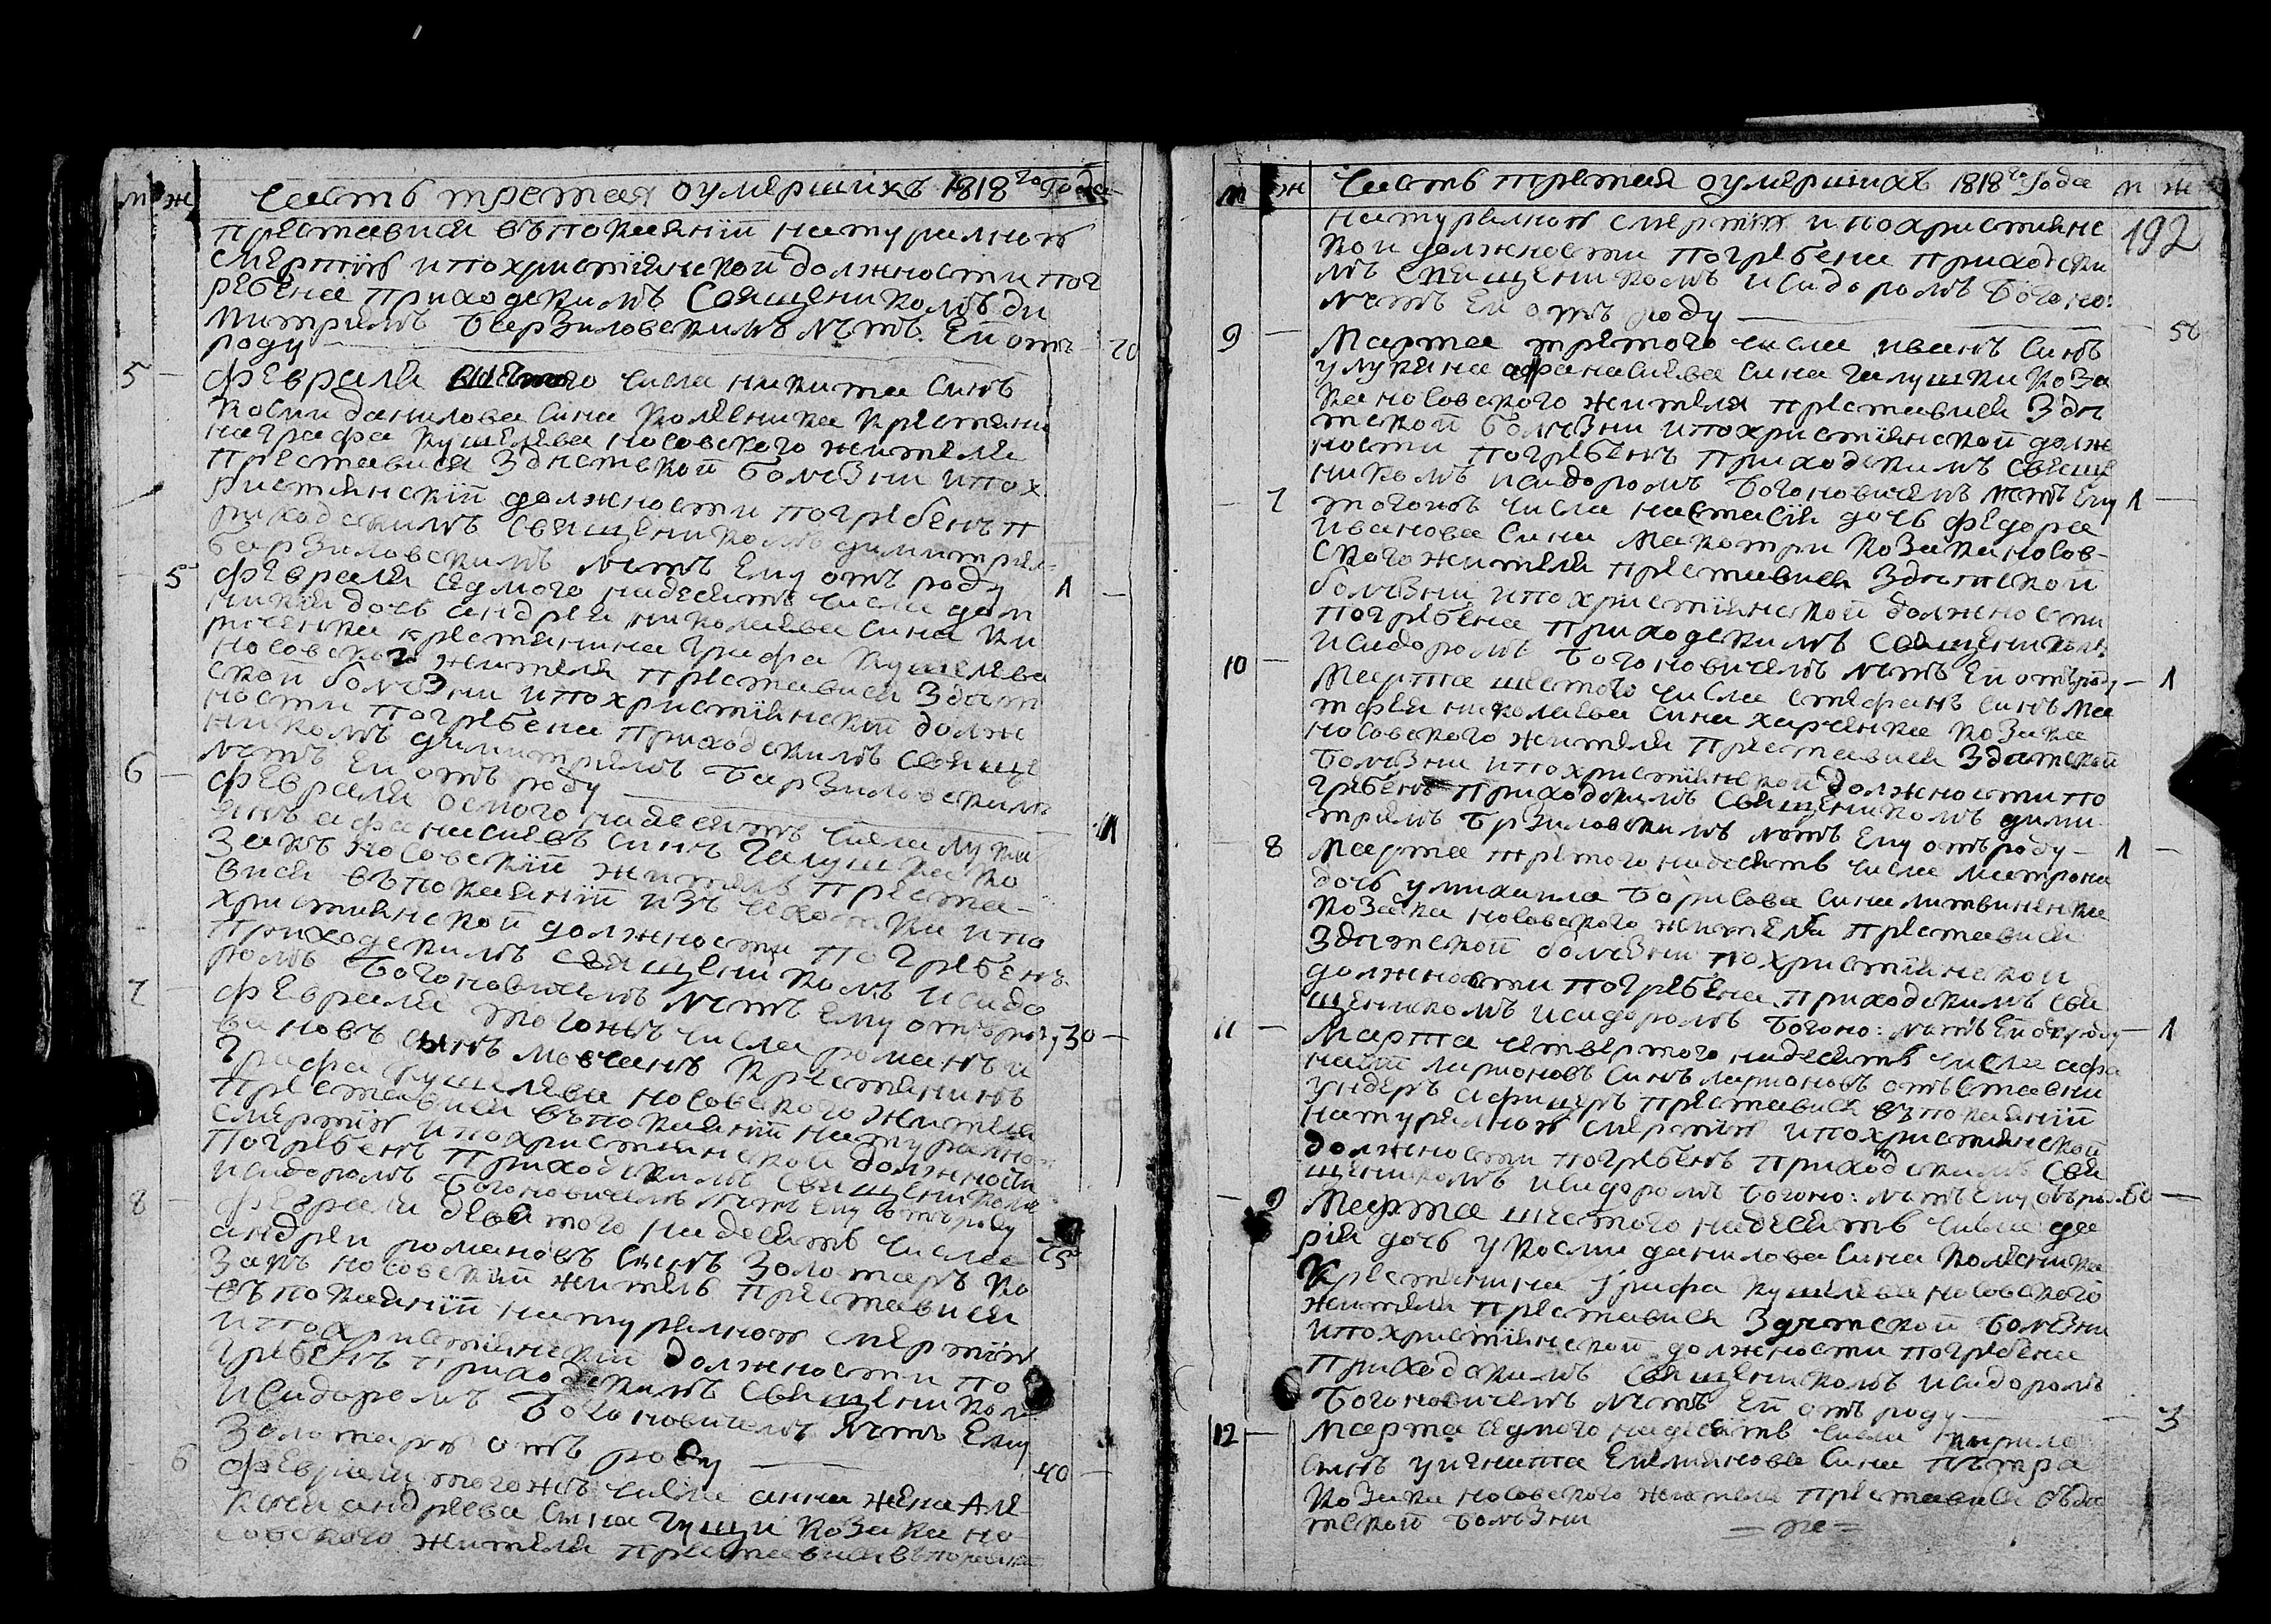 м ж Часть третая о умершихъ 1818го года
преставися въ покаяніи натуралною
смертію и по христіянской должности пог
ребена приходскимъ Священикомъ ди
митриемъ Барзиловскимъ лѣтъ Ей отъ
роду 20
5 февраля числа никита Синъ
косми данилова Сина колѣсника крестяни
на графа кушелева носовского жителя
преставися Здѣтской болѣзни и по х
ристиянскій должности погребенъ п
риходскимъ Священикомъ димитрием
барзиловскимъ лѣтъ Ему отъ роду 1
5 февраля седмого надесять числа дом
никия дочь андрея николаева Сина ки
риченка крестянина графа кушелева
носовского жителя преставися Здѣт
ской болѣзни и по христіянскій долж
ности погребена приходскимъ Свяще
никомъ димитриемъ Барзиловскимъ
лѣтъ Ей отъ роду 1
6 февраля осмого надесять числа лукя
янъ афанасиевъ Синъ галушка ко
закъ носовскій житель преста-
вися въ покаяніи изъ и по
християнской должности погребенъ
приходскимъ священикомъ исидо
ромъ Богоновичемъ лѣтъ Ему отъ роду 30
7 февраля тогожъ числа романъ и
вановъ сынъ мовчанъ крестянинъ
графа кушелева носовского жителя
преставися въ покаяніи натуралною
смертію и по християнской должности
погребенъ приходскимъ священикомъ
исидоромъ Богоновичемъ лѣтъ Ему отъ роду
8 февраля девятого надесять числа
андреи романовъ Синъ Золотаръ ко
закъ носовскій житель преставися
въ покаяніи натуралною смертію
и по христіянскій должности по
гребенъ приходскимъ Священиком
исидоромъ Богоновичемъ лѣтъ Ему
Золотарю отъ роду 40
6 февраля тогожъ числа анна жена Але
андреева Сина гущи козака но
совского жителя преставися въ покаяніи
м ж Часть третая о умершихъ 1818го года м ж
натуралною смертію и по християнс 192
кои должности погребена приходски
мъ священикомъ исидоромъ Богоно:
лѣтъ Ей отъ роду
9 Марта третого числа иванъ Синъ
у лукяна афанасиева Сина галушки коза
ка носовского жителя преставися Здѣ
тской болѣзни и по христіянской долж
ности погребенъ приходскимъ Свяще
никомъ исидоромъ Богоновичемъ лѣтъ Ему 1
7 тогожъ числа настасія дочь федора
иванова Сина Макотри козака носов-
ского жителя преставися Здѣтской
болѣзни и по христіянской должности
погребена приходскимъ Священиком
исидоромъ Богоновичемъ лѣтъ Ей отъ роду 1
10 Марта шестого числа стефанъ Синъ Ма
тфея николаева Сина харченка козака
носовского жителя преставися Здѣтской
болѣзни и по христіянской должности по
гребенъ приходскимъ Священикомъ дими
триемъ Брзиловскимъ лѣтъ Ему отъ роду 1
8 Марта третого надесять числа Матрона
дочь у михаила Борисова Сина литвиненка
козака носовского жителя преставися
Здѣтской болѣзни по христіянской
должности погребена приходскимъ Свя
щеникомъ исидоромъ Богоно: лѣтъ Ей от роду 1
11 Марта четвертого надесять числа афа
насій ларионовъ Синъ ларионовъ отъставни
ундеръ афицеръ преставися въ покаяніи
натуралною смертію и по християнской
должности погребенъ приходскимъ Свя
щеникомъ исидоромъ Богоно: лѣтъ Ему отъ ро. 60
9 Марта шестого надесять числа да
рія дочь у косми данилова Сина колѣсника
крестянина графа кушелева носовского
жителя преставися Здѣтской болѣзни
и по христіянской должности погребена
приходскимъ священикомъ исидоромъ
Богоновичемъ лѣтъ Ей отъ роду 3
12 Марта седмого надесять числа кирило
Синъ у игната Емелянова Сина пѣтра
козака носовского жителя преставися одъ дѣ
тской болѣзни